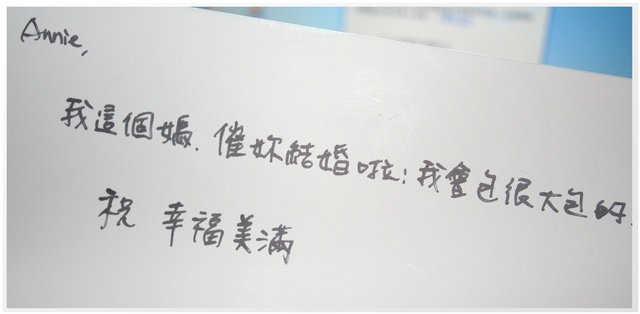 Annie,
我這個媽.催妳結婚啦!我會包很大包的.
祝 幸福美滿